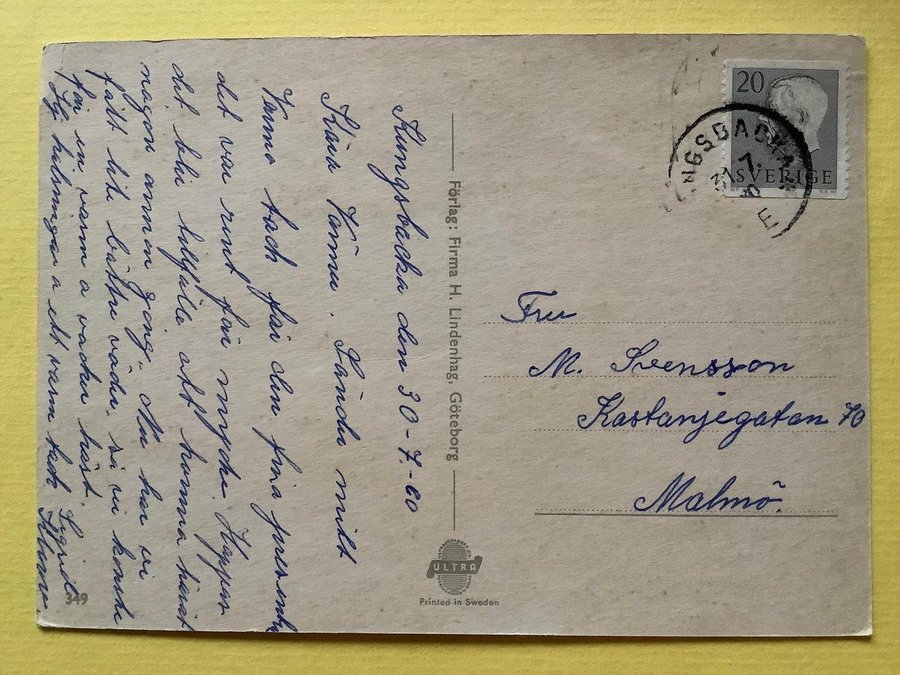 Kungsbacka den 30-7.-60
Kära Vännu. Sänder mitt
Varma tack för den fina presenten
det var rent för mycke. Hoppas
det blir tillfälle att komma härut
någon annan gång. Nu har vi
fått lite bättre väder, så vi kanske
får en varm o vacker höst.
Hj hälsningar o ett varm tack
Förlag: Firma H. Lindenhag, Göteborg
ULTRA
Printed in Sweden
349
20
SVERIGE
7.
Fru
M. Svensson
Kastanjegatan 70
Malmö.